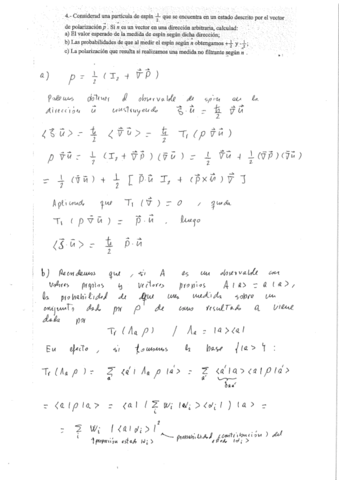 4.- Considerad una partícula de espín 1/2 que se encuentra en un estado descrito por el vector
de polarización p⃗. Si n es un vector en una dirección arbitraria, calculad:
a) El valor esperado de la medida de espín según dicha dirección;
b) Las probabilidades de que al medir si espín según n obtengamos +1/2 y -1/2;
c) La polarización que resulta si realizamos una medida no filtrante según n .
a) ρ = 1/2 (I₂ + σ⃗ p⃗)
Podemos obtener el observable de spin en la
dirección u⃗ construyendo S⃗·u⃗ = ħ/2 σ⃗ u⃗
⟨S⃗ u⃗⟩ = ħ/2 ⟨σ⃗ u⃗⟩ = ħ/2 Tr (ρ σ⃗ u⃗)
ρ σ⃗ u⃗ = 1/2 (I₂ + σ⃗ p⃗)(σ⃗ u⃗) = 1/2 σ⃗ u⃗ + 1/2 (σ⃗ p⃗)(σ⃗ u⃗)
= 1/2 (σ⃗ u⃗) + 1/2 [ p⃗ u⃗ I₂ + (p⃗ × u⃗) σ⃗ ]
Aplicando que Tr (σ⃗) = 0 , queda
Tr (ρ σ⃗ u⃗) = p⃗·u⃗ , luego
⟨S⃗·u⃗⟩ = ħ/2 p⃗·u⃗
b) Recordemos que, si A es un observable con
valores propios y vectores propios A|a> = a|a>,
la probabilidad de que una medida sobre un
conjunto dado por ρ de como resultado a viene
dada por
Tr (Λa ρ) / Λa = |a><a|
En efecto, si tomamos la base {|a>} :
Tr (Λa ρ) = Σ <a'| Λa ρ |a'> = Σ <a'|a><a|ρ|a'>
= <a|ρ|a> = <a| ( Σ Wi |αi><αi| ) |a> =
= Σ Wi |<a|αi>|²